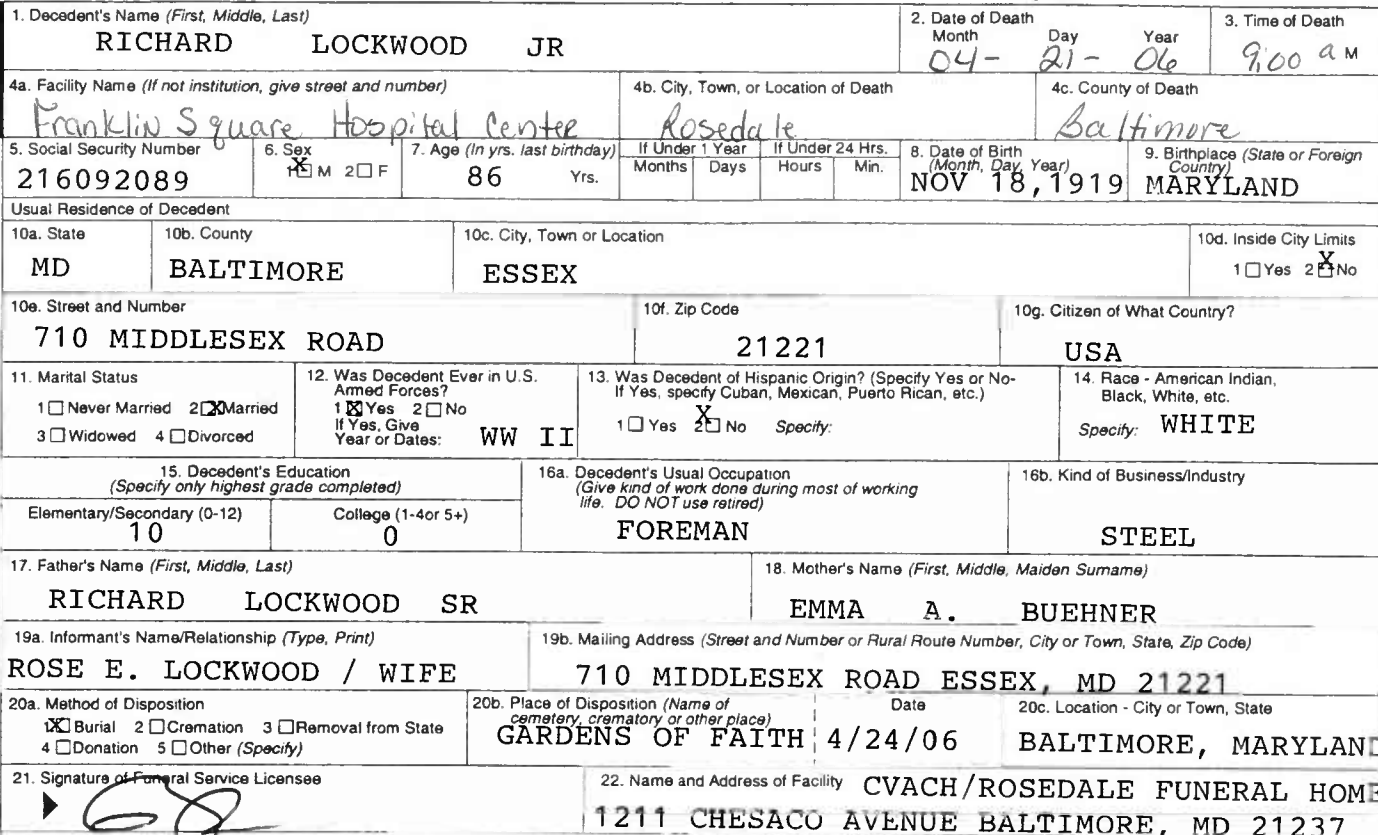 1. Decedent's Name (First, Middle, Last)
RICHARD LOCKWOOD JR
2. Date of Death
Month Day Year
04- 21- 06
3. Time of Death
9:00 a M
4a. Facility Name (If not institution, give street and number)
Franklin Square Hospital Center
4b. City, Town, or Location of Death
Rosedale
4c. County of Death
Baltimore
5. Social Security Number
216092089
6. Sex
1☒ M 2☐ F
7. Age (In yrs. last birthday)
86 Yrs.
If Under 1 Year
Months Days
If Under 24 Hrs.
Hours Min.
8. Date of Birth
(Month, Day, Year)
NOV 18,1919
9. Birthplace (State or Foreign
Country)
MARYLAND
Usual Residence of Decedent
10a. State
MD
10b. County
BALTIMORE
10c. City, Town or Location
ESSEX
10d. Inside City Limits
1☐Yes 2☒No
10e. Street and Number
710 MIDDLESEX ROAD
10f. Zip Code
21221
10g. Citizen of What Country?
USA
11. Marital Status
1☐Never Married 2☒Married
3☐Widowed 4☐Divorced
12. Was Decedent Ever in U.S.
Armed Forces?
1☒Yes 2☐No
If Yes, Give
Year or Dates: WW II
13. Was Decedent of Hispanic Origin? (Specify Yes or No-
If Yes, specify Cuban, Mexican, Puerto Rican, etc.)
1☐Yes 2☒No Specify:
14. Race - American Indian,
Black, White, etc.
Specify: WHITE
15. Decedent's Education
(Specify only highest grade completed)
Elementary/Secondary (0-12)
10
College (1-4or 5+)
0
16a. Decedent's Usual Occupation
(Give kind of work done during most of working
life. DO NOT use retired)
FOREMAN
16b. Kind of Business/Industry
STEEL
17. Father's Name (First, Middle, Last)
RICHARD LOCKWOOD SR
18. Mother's Name (First, Middle, Maiden Surname)
EMMA A. BUEHNER
19a. Informant's Name/Relationship (Type, Print)
ROSE E. LOCKWOOD / WIFE
19b. Mailing Address (Street and Number or Rural Route Number, City or Town, State, Zip Code)
710 MIDDLESEX ROAD ESSEX, MD 21221
20a. Method of Disposition
1☒Burial 2☐Cremation 3☐Removal from State
4☐Donation 5☐Other (Specify)
20b. Place of Disposition (Name of
cemetery, crematory or other place)
GARDENS OF FAITH
Date
4/24/06
20c. Location - City or Town, State
BALTIMORE, MARYLAND
21. Signature of Funeral Service Licensee
22. Name and Address of Facility CVACH/ROSEDALE FUNERAL HOME
1211 CHESACO AVENUE BALTIMORE, MD 21237